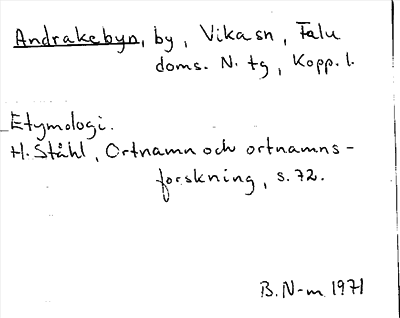 Andrakebyn, by, Vika sn, Falu
doms. N. tg, Kopp. l.
Etymologi.
H. Ståhl, Ortnamn och ortnamns-
forskning, s. 72.
B. N-m 1971